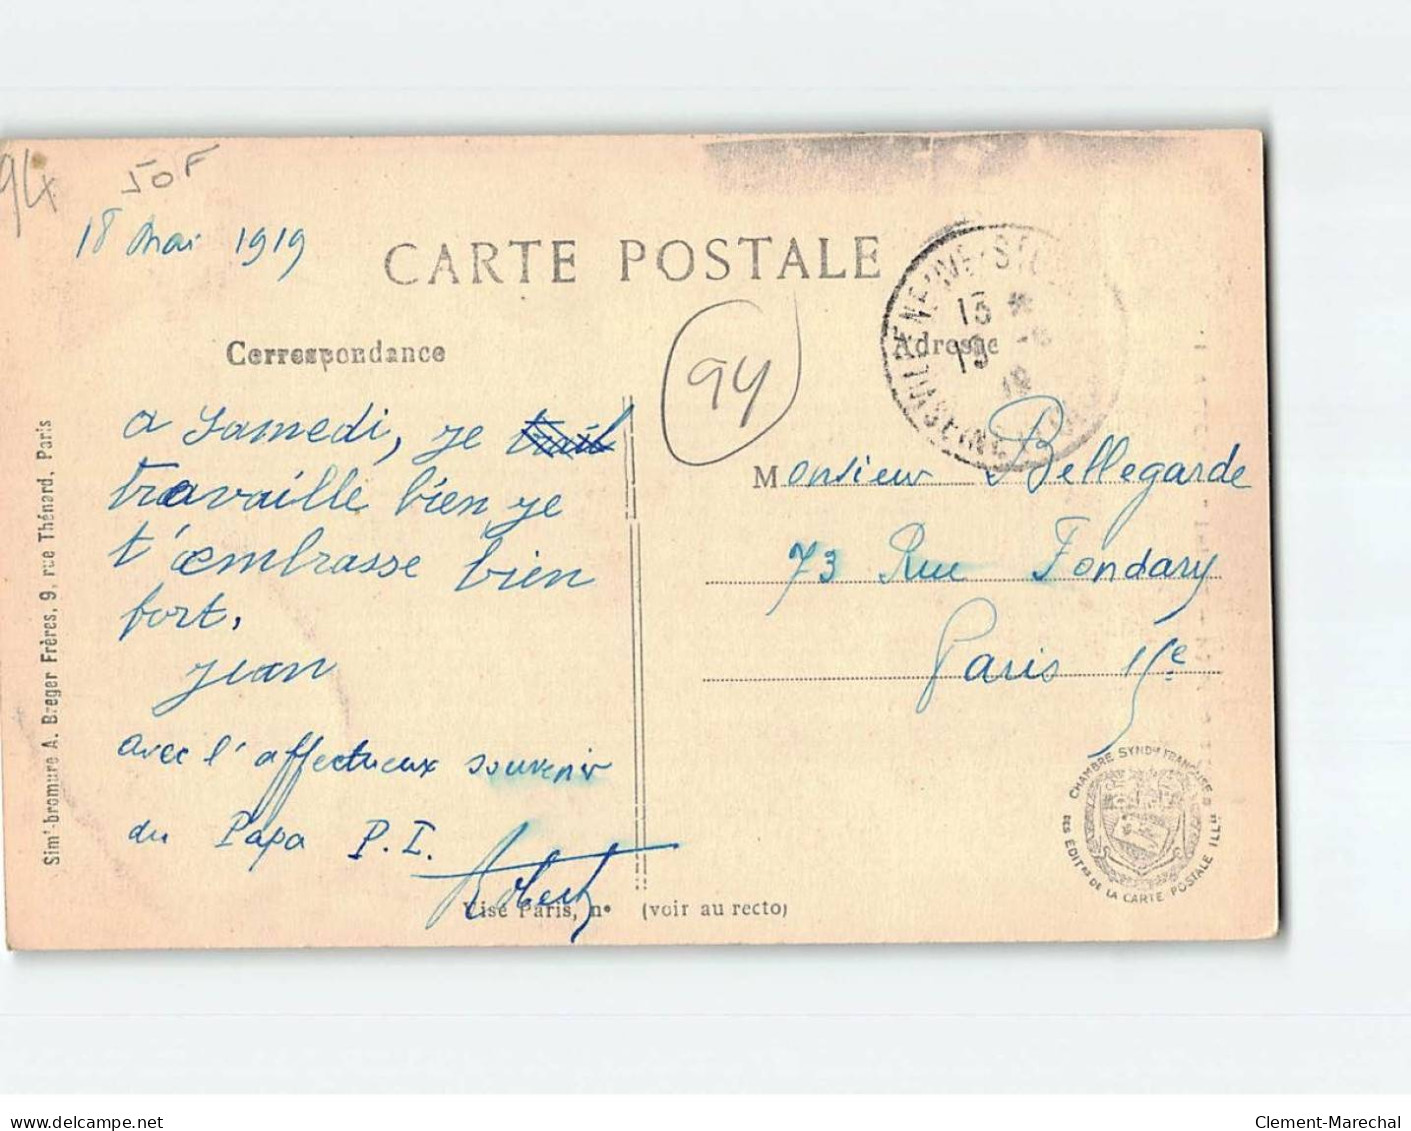 94
50F
18 mai 1919
CARTE POSTALE
Correspondance
Adresse
94
13
19
a samedi, je
travaille bien je
t'embrasse bien
fort,
jean
avec l'affectueux souvenir
du Papa P.I.
Robert
Monsieur Bellegarde
73 Rue Fondary
Paris 15e
Visé Paris, n° (voir au recto)
Sim'-bromure A. Breger Frères, 9, rue Thénard, Paris
CHAMBRE SYNDle FRANÇAISE
DES EDITrs DE LA CARTE POSTALE ILLée
delcampe.net
Clement-Marechal